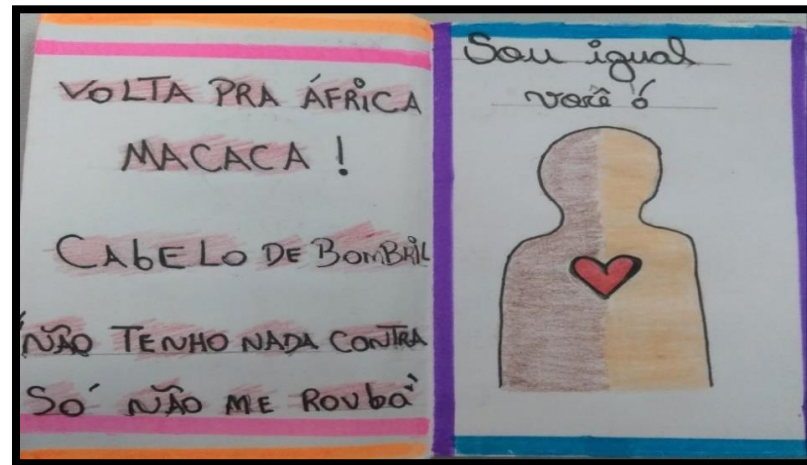 VOLTA PRA ÁFRICA
MACACA !
CABELO DE BOMBRIL
"NÃO TENHO NADA CONTRA
SÓ NÃO ME ROUBA"
Sou igual
você ó